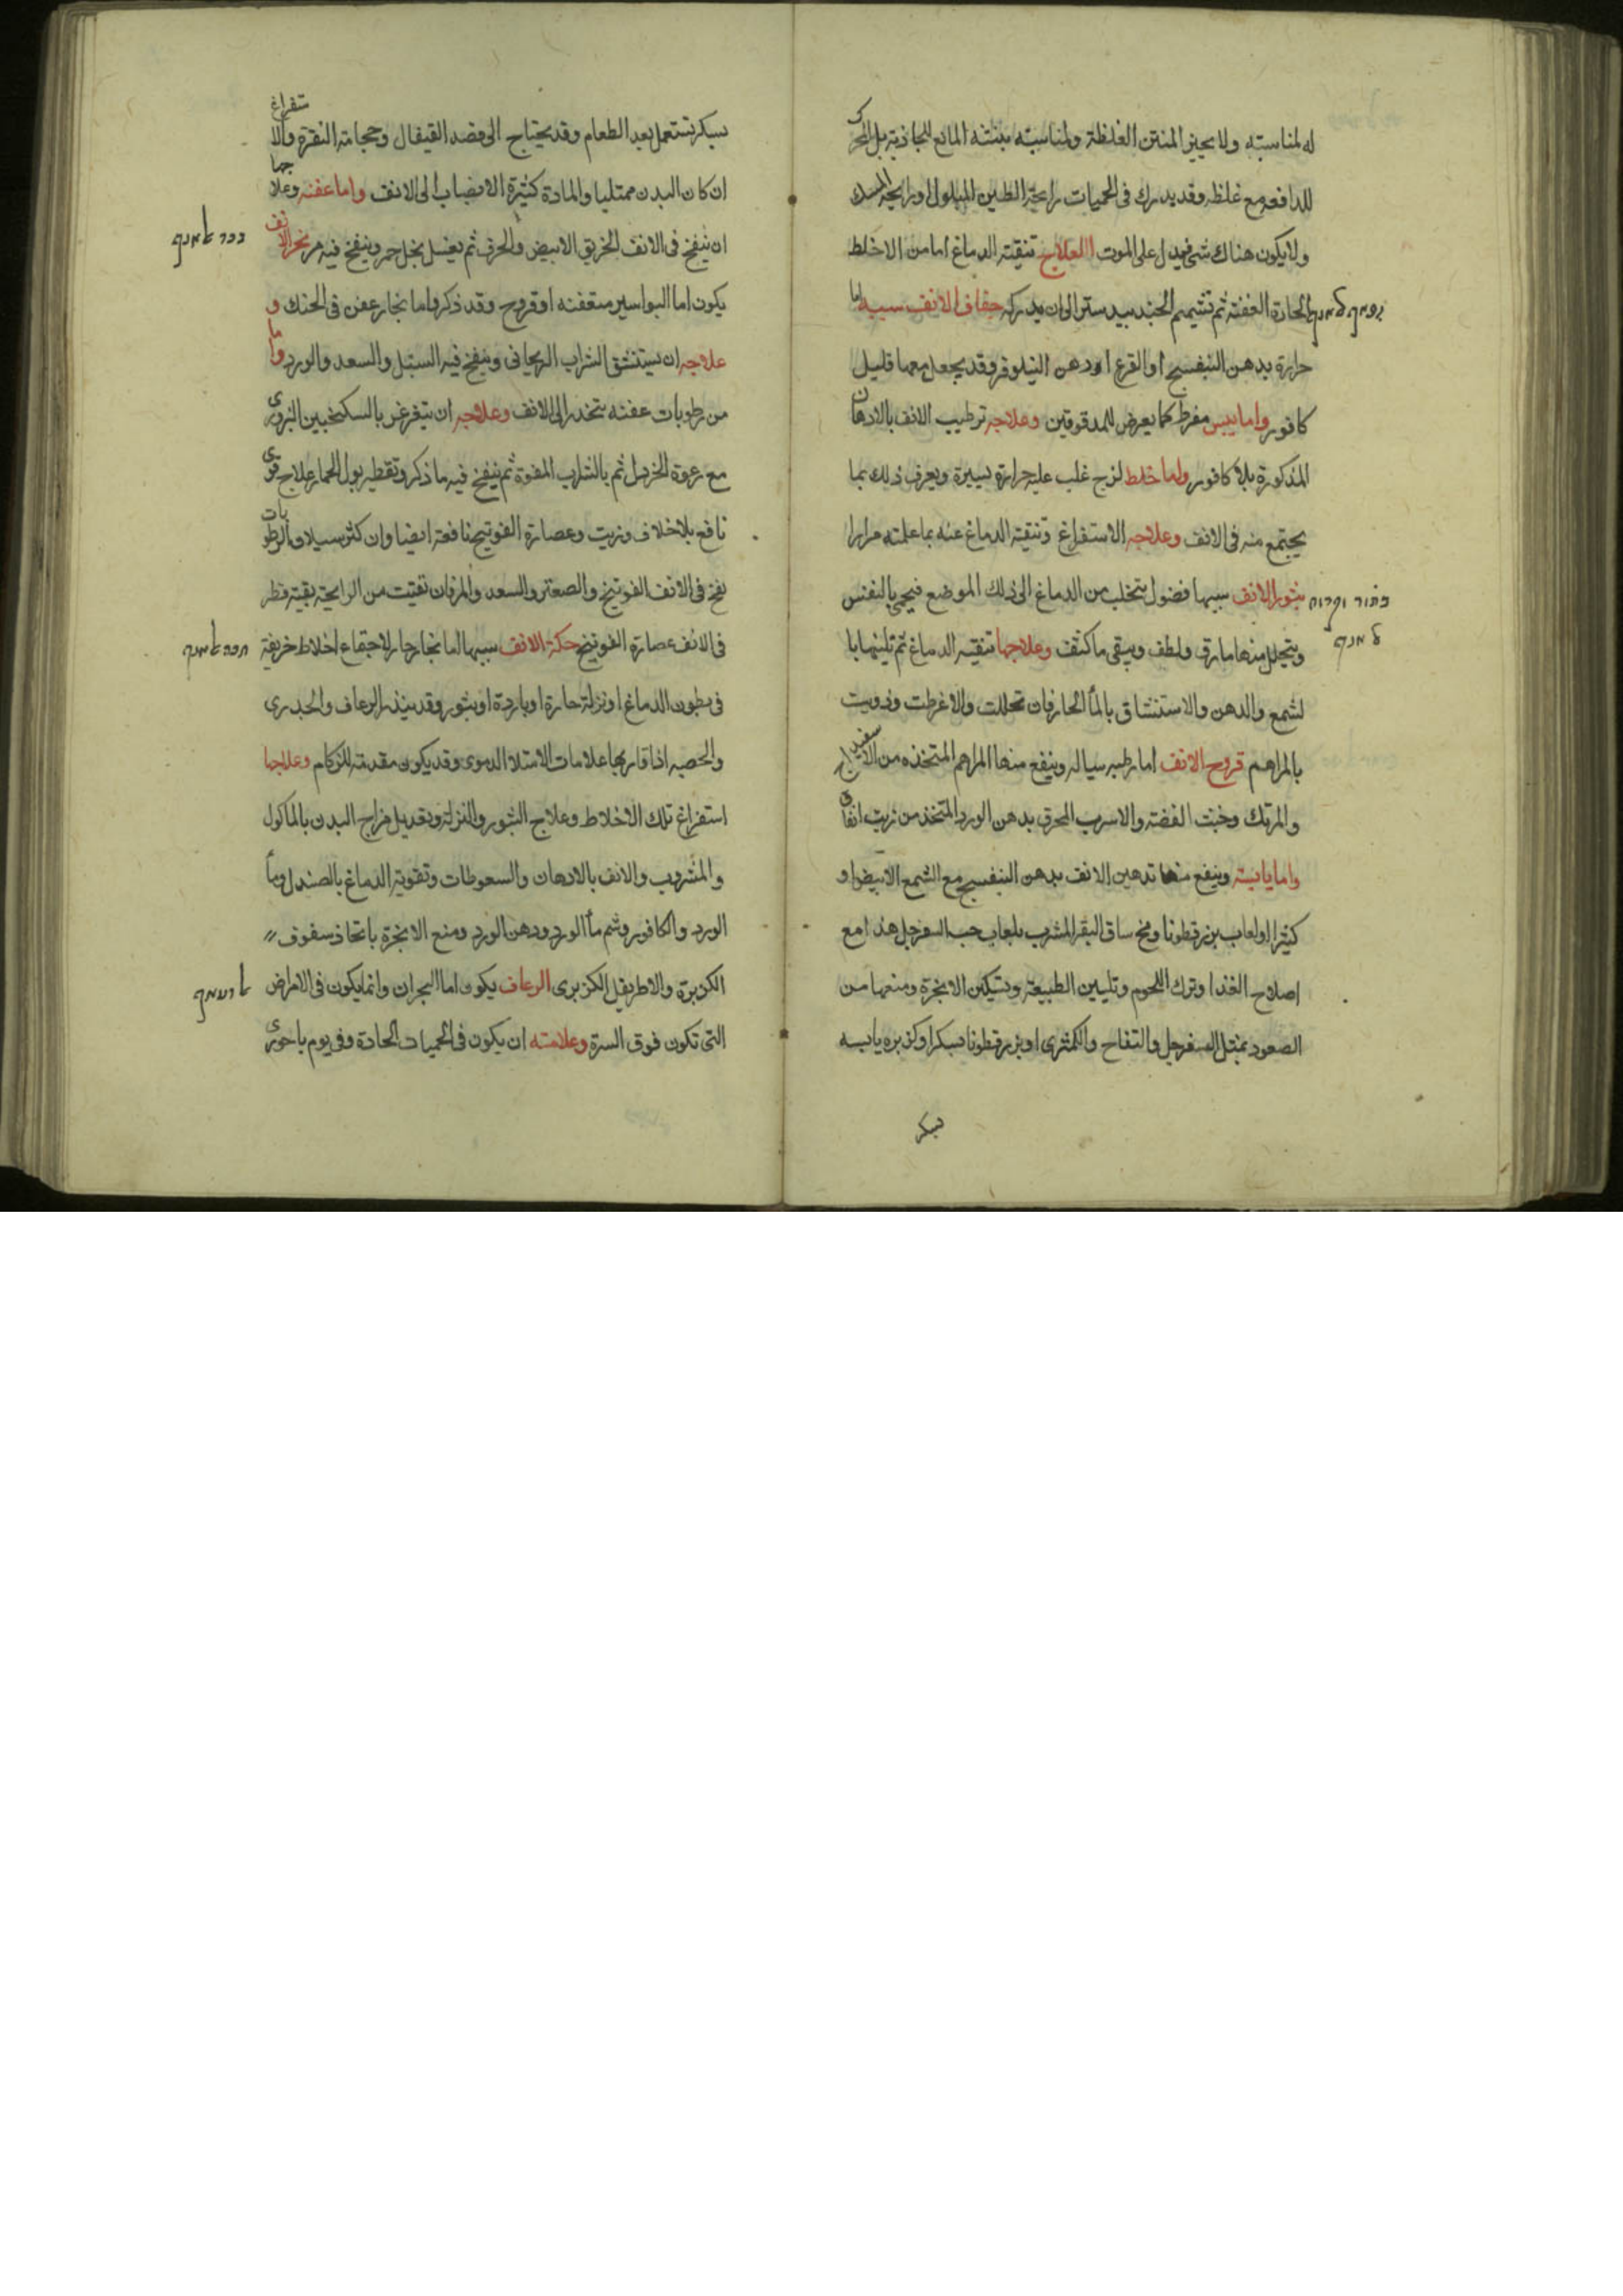 له لمناسبته ولا يحيز المنتن الغلظة ولمناسبته بنتنه المانع للجاذبة بل المحرك
للدافعه مع غلظه وقد يدرك فى الحميات رايحة الطين المبلول ورايحة السمك
ولا يكون هناك شى فيدل على الموت العلاج تنقية الدماغ اما من الاخلط
الحادة العفنة ثم تشميم الجندبيدستر الى ان يدركه جفاف الانف سببه اما
حرارة بدهن البنفسج او القرع او دهن النيلوفر وقد يجعل معها قليل
كافور واما يبس مفرط كما يعرض للمدقوقين وعلاجه ترطيب الانف بالادهان
المذكورة بلا كافور واما خلط لزج غلب عليه حرارة يسيرة ويعرف ذلك بما
يجتمع منه فى الانف وعلاجه الاستفراغ وتنقية الدماغ عنه بما علمته مرارا
بثور الانف سببها فضول تتحلب من الدماغ الى ذلك الموضع فيحمى بالنفس
בתור וקרוח
ويتحلل منها ما رق ولطف ويبقى ما كثف وعلاجها تنقية الدماغ ثم تليينها با
لشمع والدهن والاستنشاق بالمأ الحار فان تحللت والا غرطت ودويت
بالمراهم قروح الانف اما رطبه سياله وينفع منها المراهم المتخذه من الاسفيداج
والمرتك وخبث الفضه والاسرب المحرق بدهن الورد المتخذ من زيت انفاق
واما يابسة وينفع منها تدهين الانف بدهن البنفسج مع الشمع الابيض او
كثيرا او لعاب بزرقطونا ومخ ساق البقر المشرب بلعاب حب السفرجل هذا مع
اصلاح الغذا وترك اللحوم وتليين الطبيعة وتسكين الابخرة ومنعها من
الصعود بمثل السفرجل والتفاح والكمثرى او بزرقطونا بسكر او كزبره يابسه
بسكر
بسكر تستعمل بعد الطعام وقد يحتاج الى فصد القيفال وحجامة النقرة والاستفراغ
ان كان البدن ممتليا والمادة كثيرة الانصباب الى الانف واما عفنه وعلاجها
ان ينفخ فى الانف الخربق الابيض والحرف ثم يغسل بخل خمر وينفخ فيه مر بخر الانف
يكون اما لبواسير متعفنه او قروح وقد ذكر واما بخار عفن فى الحنك و
علاجه ان يستنشق الشراب الريحانى وينفخ فيه السنبل والسعد والورد واما
من رطوبات عفنه تتحدر الى الانف وعلاجه ان يتغرغر بالسكنجبين البزورى
مع رغوة الخردل ثم بالشراب المفوة ثم ينفخ فيه ما ذكر وتقطير بول الحمار علاج قوى
نافع بلا خلاف وزيت وعصارة الفوتنج نافعة ايضا وان كثر سيلان الرطوبات
نفخ فى الانف الفوتنج والصعتر والسعد والمر فان بقيت من الرايحة بقية قطر
فى الانف عصارة الفوتنج حكة الانف سببها اما بخار حار لاجتماع اخلاط حريفة
فى بطون الدماغ او نزلة حارة او باردة او بثور وقد ينذر بالرعاف والجدرى
والحصبه اذا قارنها علامات الامتلا الدموى وقد يكون مقدمة للزكام وعلاجها
استفراغ تلك الاخلاط وعلاج البثور والنزلة وتعديل مزاج البدن بالماكول
والمشروب والانف بالادهان والسعوطات وتقوية الدماغ بالصندل ومأ
الورد والكافور وشم مأ الورد ودهن الورد ومنع الابخرة باتخاذ سفوف
الكزبرة والاطريفل الكزبرى الرعاف يكون اما لبحران وانما يكون فى الامراض
التى تكون فوق السرة وعلامته ان يكون فى الحميات الحادة وفى يوم باحورى